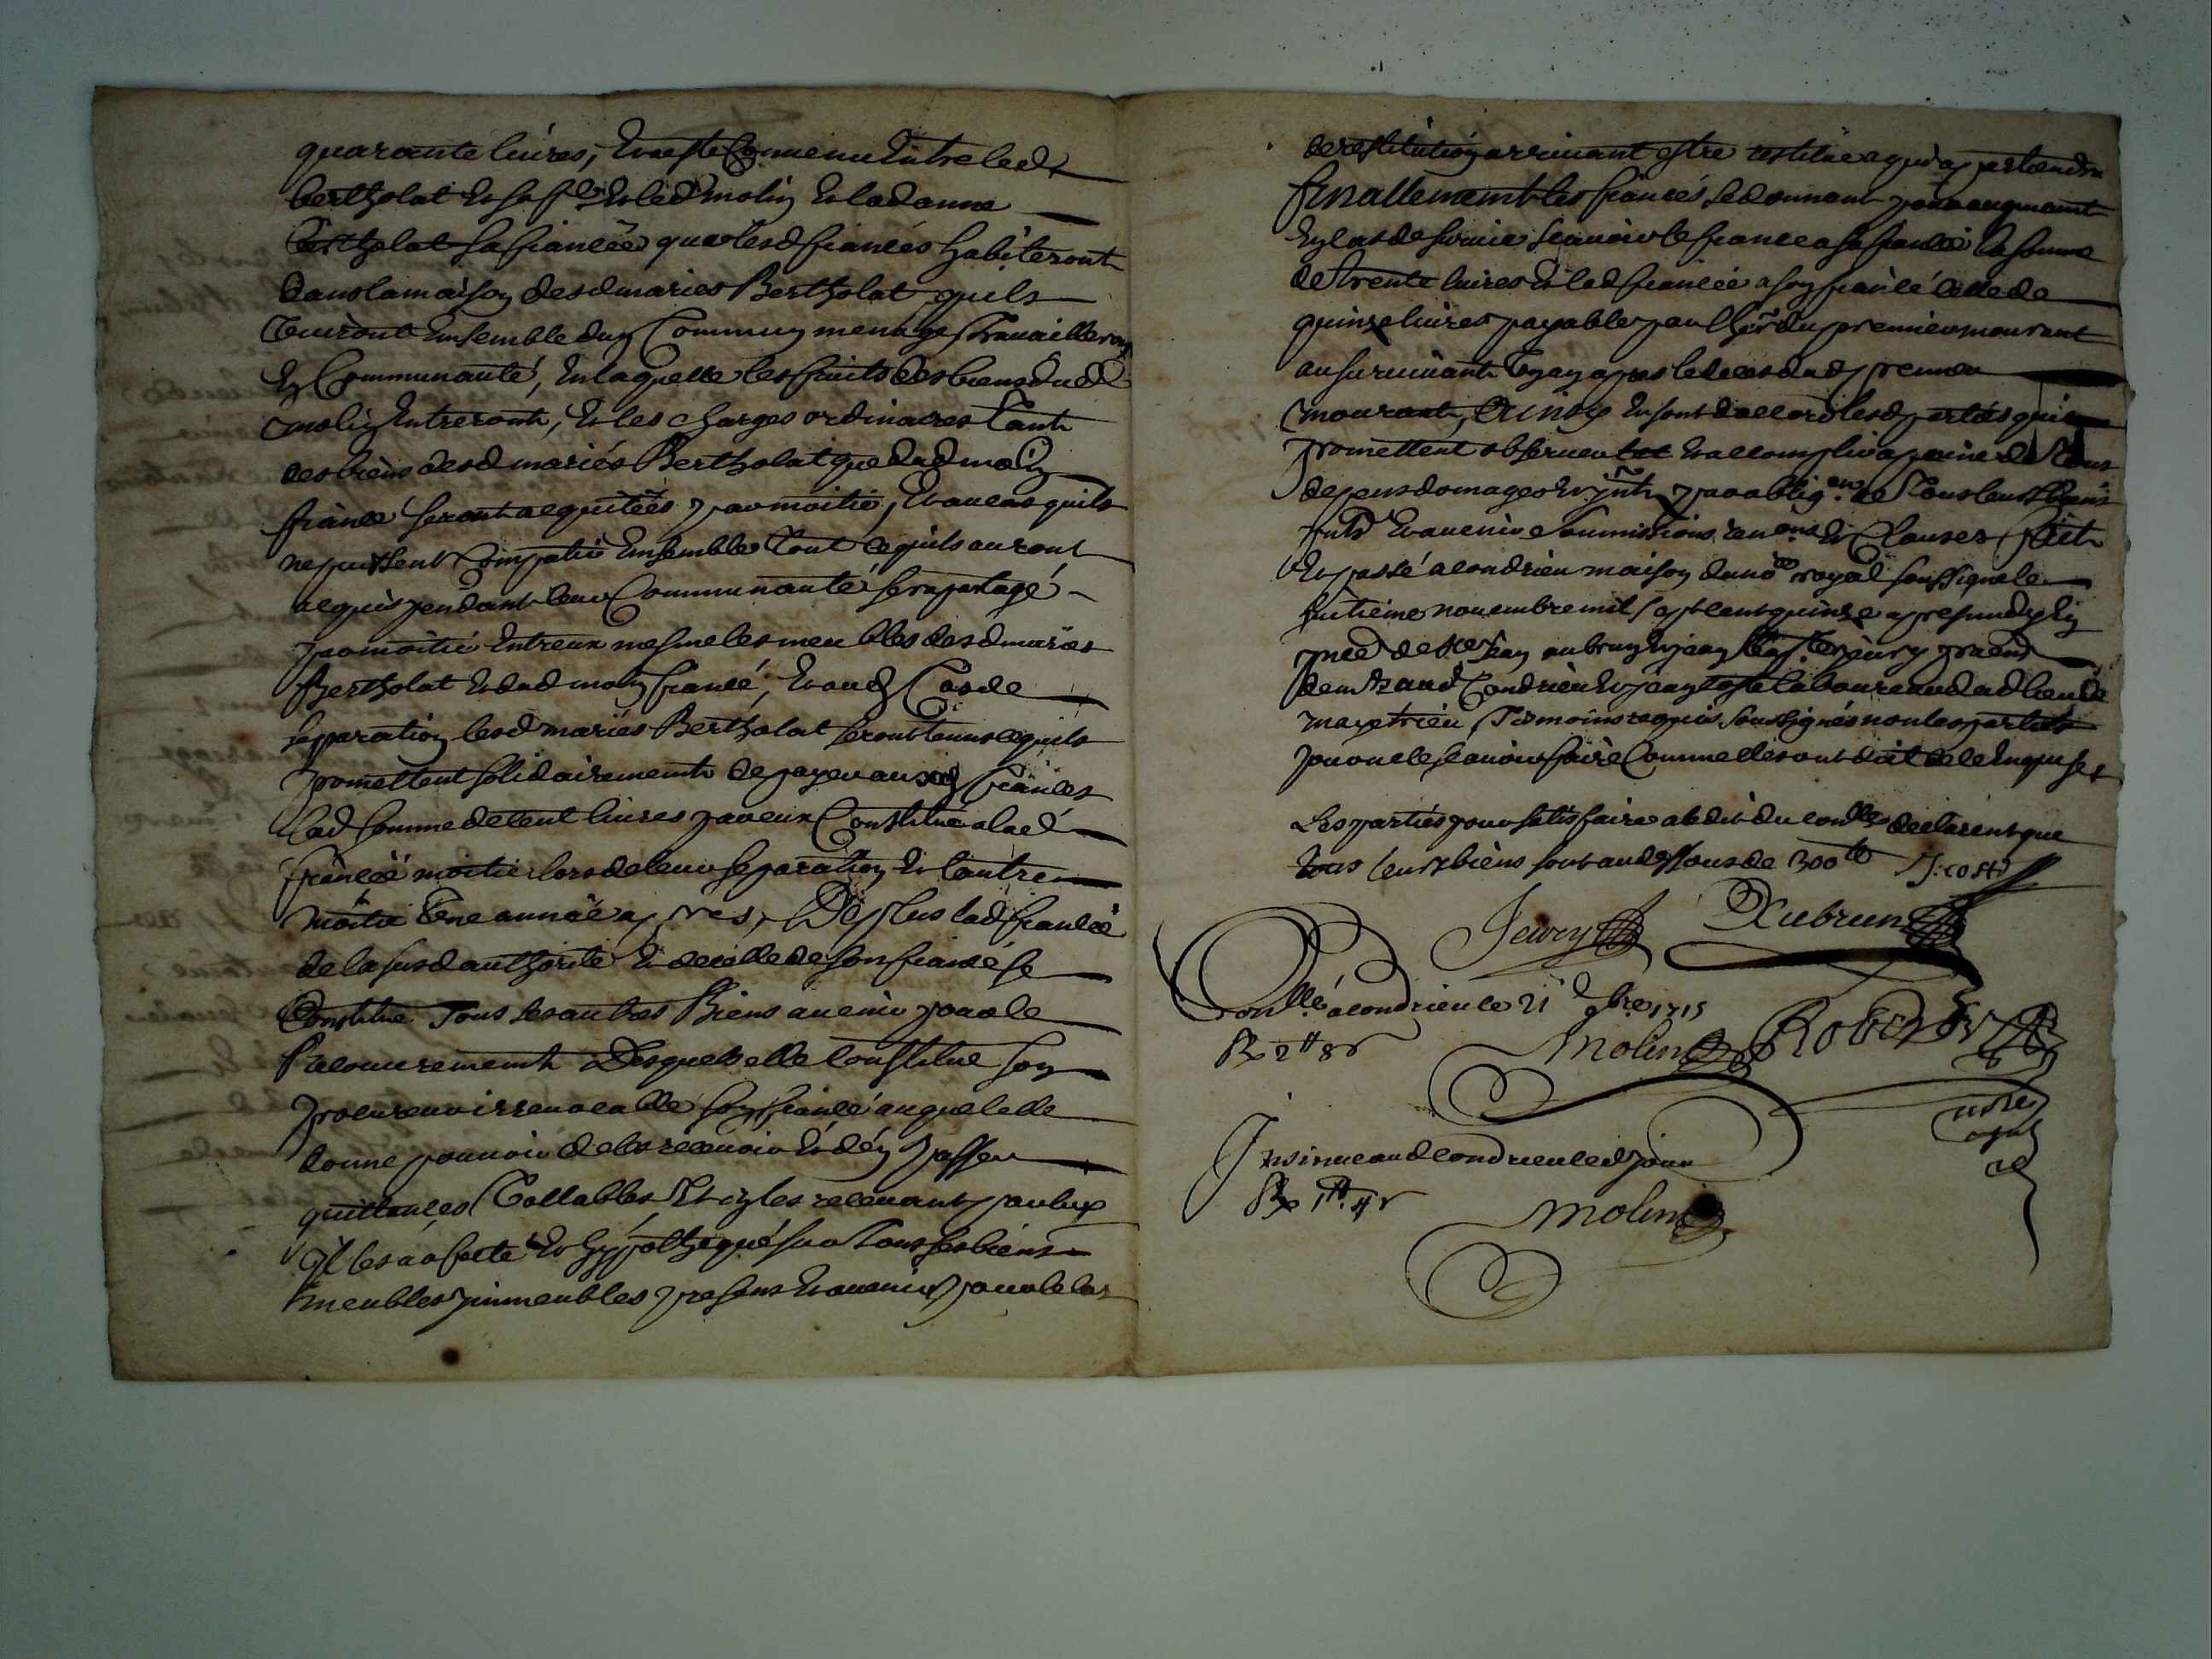 quarante livres, Et a esté Convenu Entre led
bertholat Et sa fe Et led molin Et lad anne
Bertholat sa fiancée que lesd fiancés habiteront
dans la maison desd mariés Bertholat quils
vivront Ensemble dun Commun menage travailleront
En Communauté, En laquelle les fruits des biens dud
molin Entreront, Et les charges ordinaires tant
des biens desd mariés Bertholat que dud molin
fiancé seront acquitées par moitié, Et au cas quils
ne pussent Compatir Ensemble tout ce quils auront
acquis pendant leur Communauté sera partagé
par moitié Entreux mesme les meubles desd mariés
Bertholat Et dud molin fiancé, Et aud Cas de
separation lesd mariés Bertholat seront tenus ce quils
promettent solidairement de payer ausd fiancés
lad somme de cent livres par eux Constituée a lad
fiancée moitié lors de leur separation Et lautre
moitié Une année apres, De plus lad fiancée
de la susd authorité Et de celle de son fiancé se
Constitue Tous ses autres Biens avenir pour le
Recouvrement Desquels elle Constitue son
procureur irrevocable son fiancé auquel elle
donne pouvoir de les recevoir Et den passer
quittances Vallables Et en les recevant par luy
Il les a asseuré Et hypothequé sur Tous ses biens
meubles immeubles presens Et avenir pour le cas
de restitution arrivant estre restitué a qui apartiendra
finallement les fiancés se donnent pour augment
En cas de survie scavoir le fiancé a sa fiancée la somme
de trente livres Et lad fiancée a son fiancé celle de
quinze livres payables par lher du premier mourant
au survivant Un an apres le deces dud premier
mourant, Ainsy En sont daccord lesd parties qui
promettent observer Et accomplir a peine de Tous
depens domages Et Intz par oblign de Tous leurs biens
pnts Et avenir soumissions renons Et Clauses fait
Et passé a condrieu maison du nore royal soussigné le
huitieme novembre mil sept cent quinze apres midy En
pnce de Jean aubrun Et jean Jeury
Condrieu Et jean Coste laboureur dud lieu de
Tesmoins requis soussignés non les parties
pour ne le scavoir faire Comme elles ont dit de ce Enquises
Les parties pour satisfaire a ledit du conlle declarent que
tous leurs biens sont audessous de 300tt J. coste
Jeury Aubrun
Conllé a condrieu le 21 9bre 1715
R 2tt 8s Molin Robert
nore
royal
Insinué aud condrieu led jour
R 1tt 4s
Molin